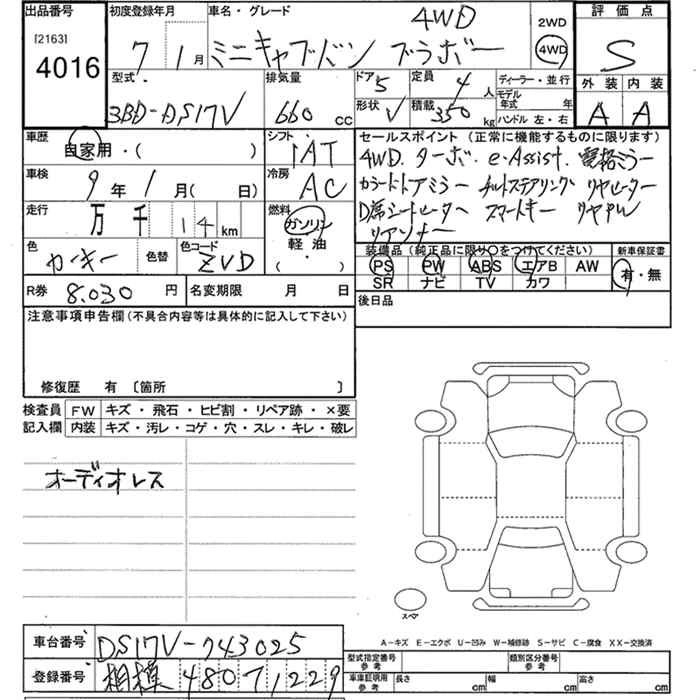 出品番号
[2163]
4016
初度登録年月
7 1 月
車名・グレード
4WD
ミニキャブバン ブラボー
2WD
4WD
評価点
S
外装 内装
A A
型式
3BD-DS17V
排気量
660 cc
ドア 5
定員 4 人
形状 V
積載 350 kg
ディーラー・並行
モデル年式 年
ハンドル 左・右
車歴
自家用・( )
シフト
IAT
車検
9 年 1 月( 日)
冷房
AC
走行
万 千 14 km
燃料
ガソリン
軽油
( )
色
カーキー
色替
色コード
ZVD
セールスポイント(正常に機能するものに限ります)
4WD. ターボ. e-Assist. 電格ミラー
カラードドアミラー チルトステアリング リヤヒーター
D席シートヒーター スマートキー リヤPW
リアワイパー
装備品(純正品に限り○をつけてください)
PS PW ABS エアB AW
SR ナビ TV カワ
新車保証書
有・無
R券 8.030 円
名変期限 月 日
後日品
注意事項申告欄(不具合内容等は具体的に記入して下さい)
修復歴 有 〔箇所 〕
検査員記入欄
FW キズ・飛石・ヒビ割・リペア跡・×要
内装 キズ・汚レ・コゲ・穴・スレ・キレ・破レ
オーディオレス
スペア
A-キズ E-エクボ U-凹み W-補修跡 S-サビ C-腐食 XX-交換済
車台番号 DS17V-743025
登録番号 相模 480 71229
型式指定番号
参考
類別区分番号
参考
車庫証明用
参考
長さ cm 幅 cm 高さ cm